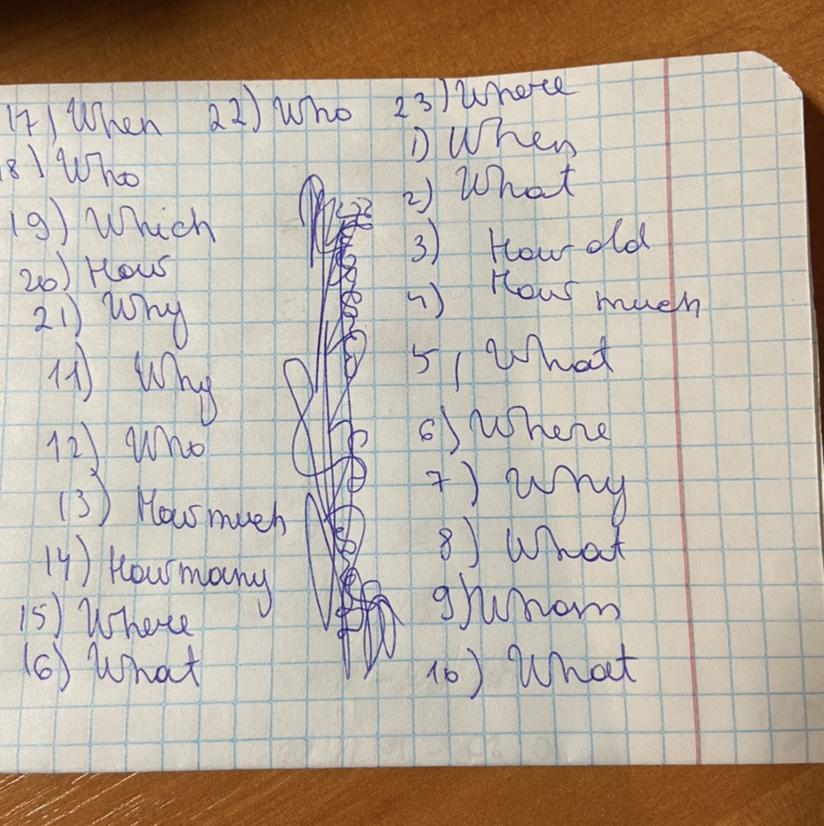 17) When 22) Who 23) Where
18) Who
19) Which
20) How
21) Why
11) Why
12) Who
13) How much
14) How many
15) Where
16) What
1) When
2) What
3) How old
4) How much
5) What
6) Where
7) Why
8) What
9) Whom
10) What